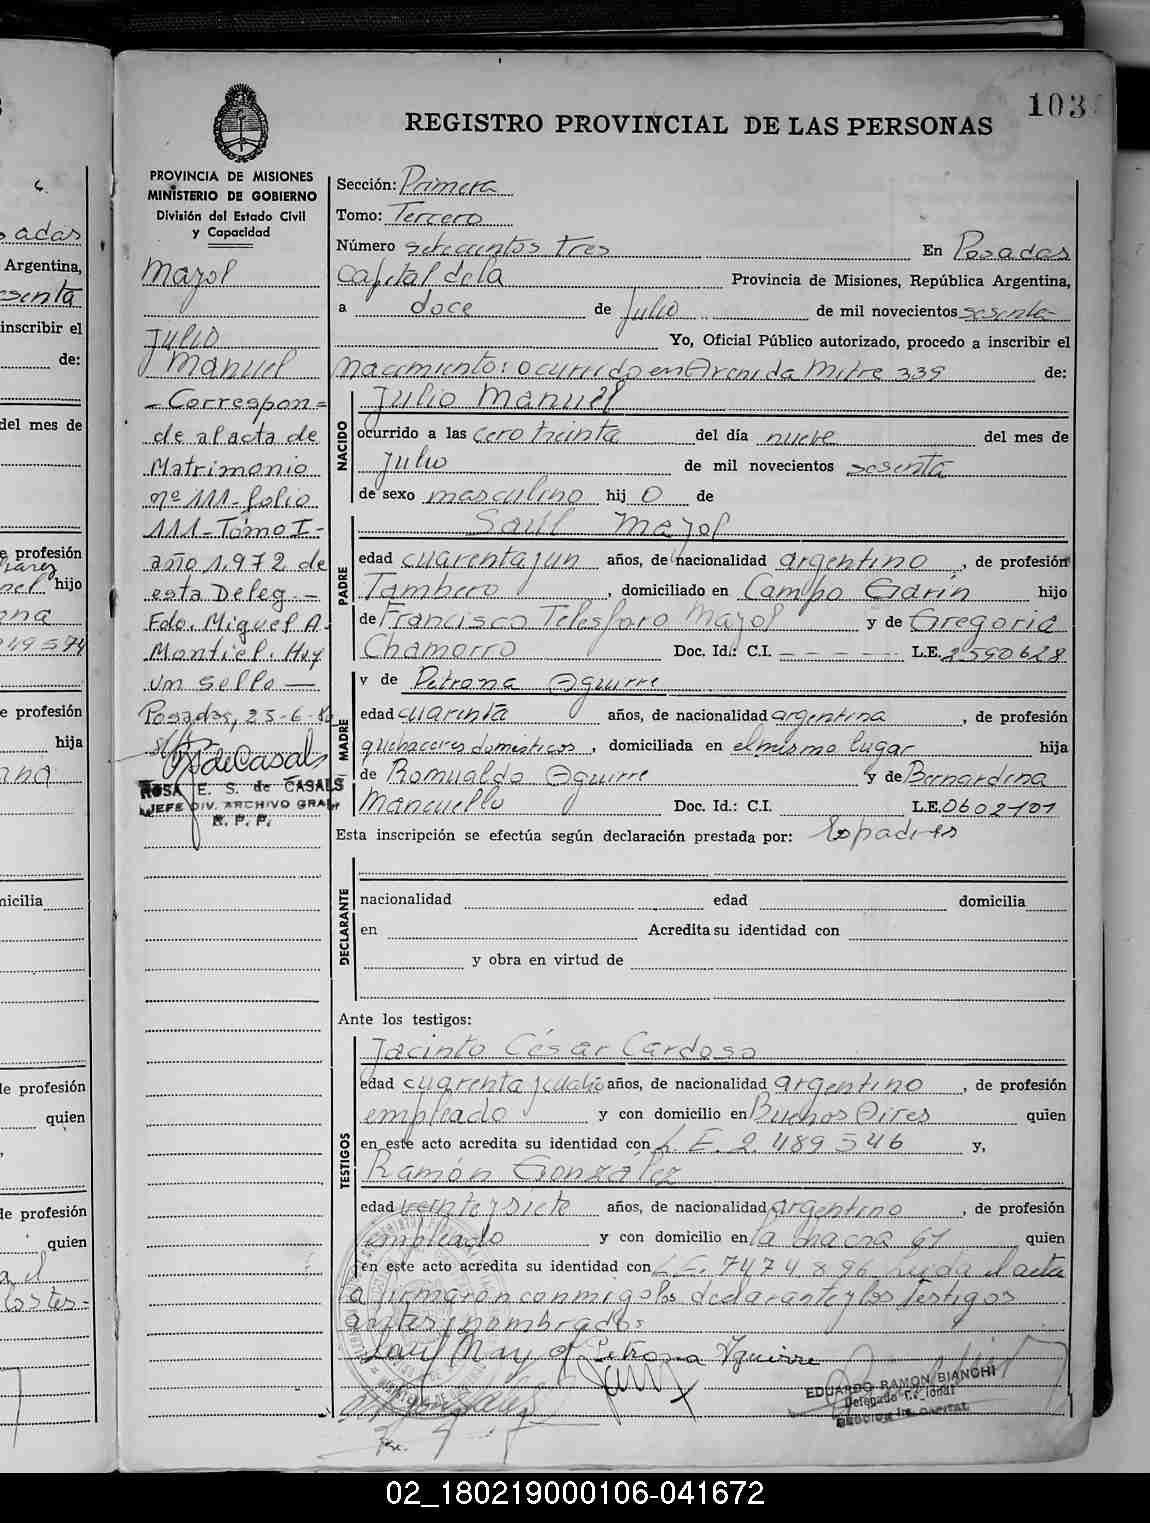 103
REGISTRO PROVINCIAL DE LAS PERSONAS
PROVINCIA DE MISIONES
MINISTERIO DE GOBIERNO
División del Estado Civil
y Capacidad
Mazol
Julio
Manuel
- Correspon=
de al acta de
Matrimonio
nº 111- folio
111- Tomo I-
año 1.972 de
esta Deleg. -
Fdo. Miguel A.
Montiel. Hay
un sello —
Posadas, 25-6-
de Casals
ROSA E. S. de CASALS
JEFE DIV. ARCHIVO GRAL
R. P. P.
Sección: Primera
Tomo: Tercero
Número setecientos tres En Posadas
Capital de la Provincia de Misiones, República Argentina,
a doce de Julio de mil novecientos sesenta
Yo, Oficial Público autorizado, procedo a inscribir el
nacimiento: ocurrido en Avenida Mitre 339 de:
NACIDO
Julio Manuel
ocurrido a las cero treinta del día nueve del mes de
Julio de mil novecientos sesenta
de sexo masculino hij o de
PADRE
Saúl Mazol
edad cuarenta y un años, de nacionalidad argentino, de profesión
Tambero, domiciliado en Campo hijo
de Francisco Telesforo Mazol y de Gregoria
Chamorro Doc. Id.: C.I. - - - - - - L.E. 2590628
MADRE
y de Petrona Aguirre
edad cuarenta años, de nacionalidad argentina, de profesión
quehaceres domésticos, domiciliada en el mismo lugar hija
de Romualdo Aguirre y de Bernardina
Mancuello Doc. Id.: C.I. L.E. 0602101
Esta inscripción se efectúa según declaración prestada por: los padres
DECLARANTE
nacionalidad edad domicilia
en Acredita su identidad con
y obra en virtud de
Ante los testigos:
TESTIGOS
Jacinto César Cardoso
edad cuarenta y cuatro años, de nacionalidad argentino, de profesión
empleado y con domicilio en Buenos Aires quien
en este acto acredita su identidad con L.E. 2.489546 y,
Ramón González
edad veinte y siete años, de nacionalidad argentino, de profesión
empleado y con domicilio en la chacra 67 quien
en este acto acredita su identidad con L.E. 7474896 Leida el acta
la firmaron conmigo los declarante y los testigos
antes nombrados
Saul Mazol Petrona Aguirre
EDUARDO RAMON BIANCHI
Delegado
SECCION 1ra. CAPITAL
02_180219000106-041672